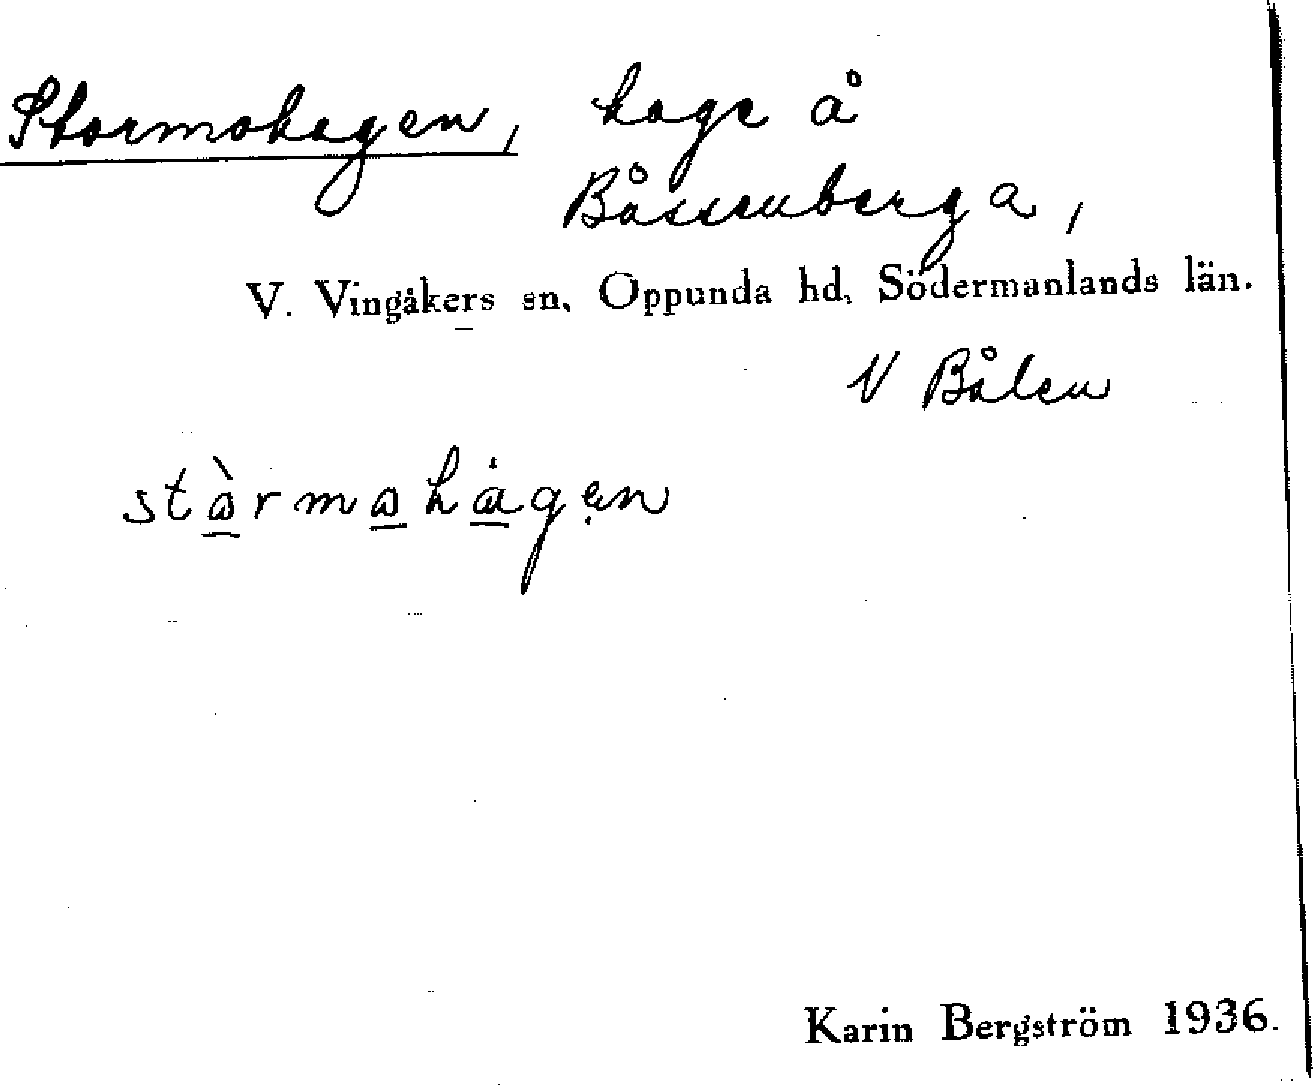 Stormohagen, hage å
Båsenberga,
V. Vingåkers sn, Oppunda hd, Södermanlands län.
V Bålen
stårmahagen
Karin Bergström 1936.